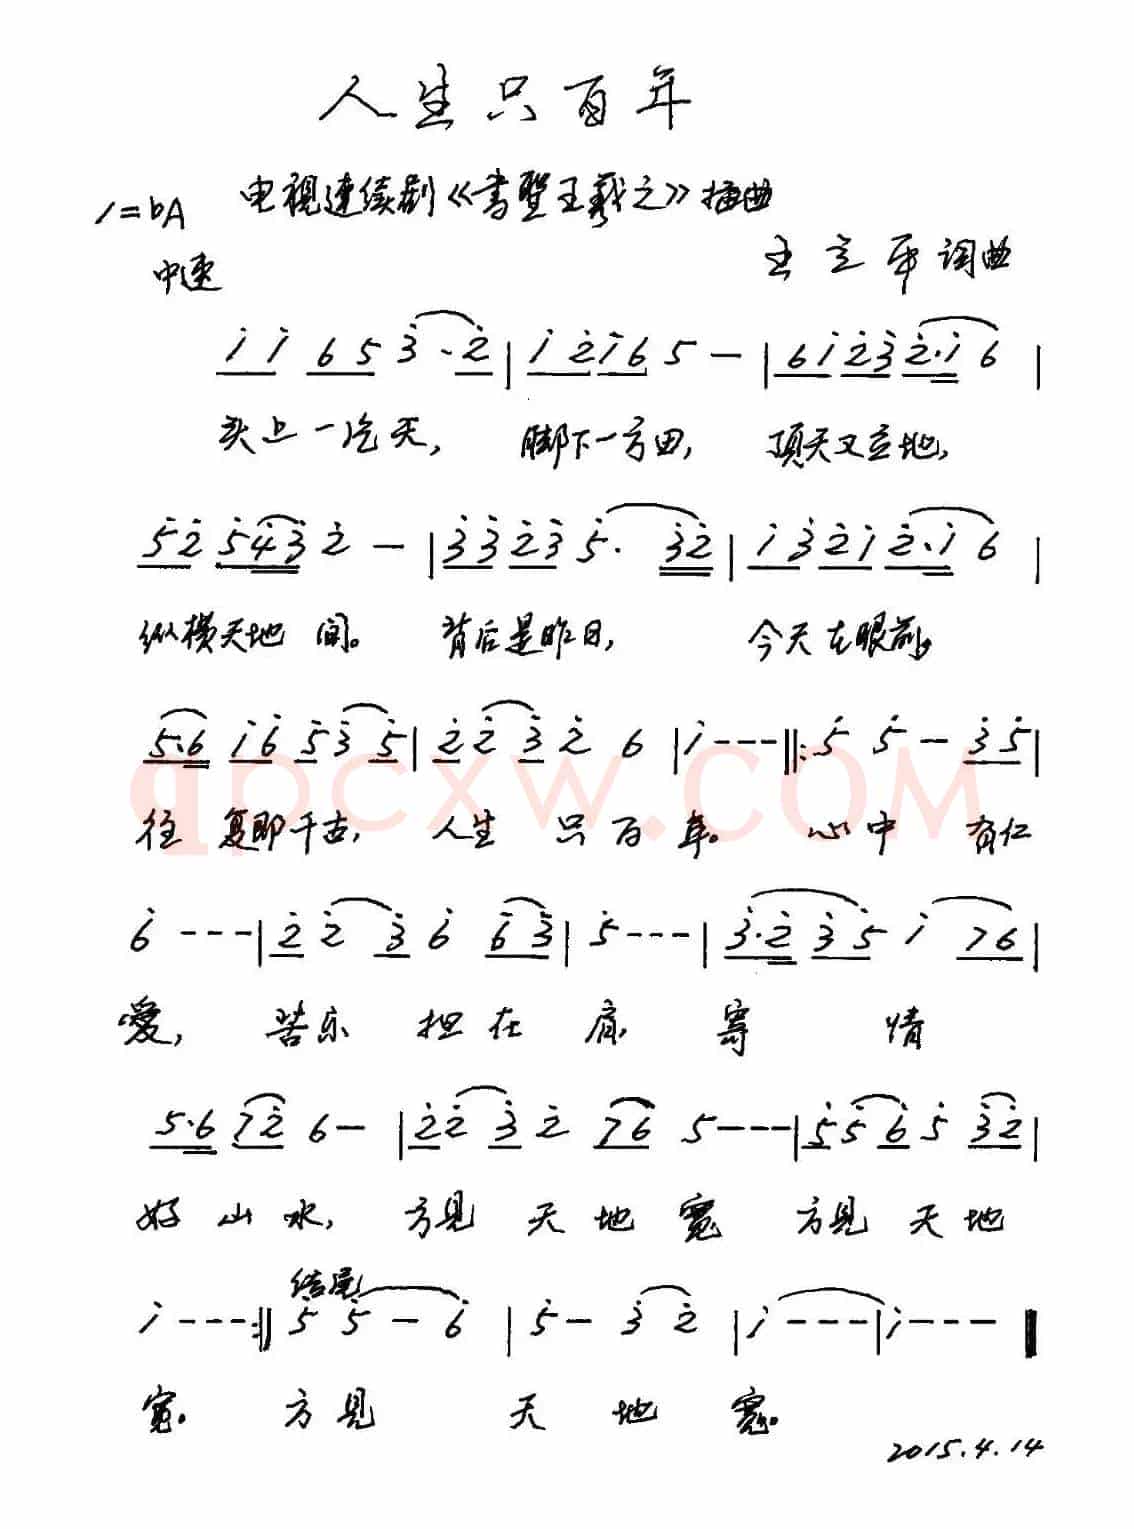 人生只百年
电视连续剧《书聖王羲之》插曲
1=bA
王立平 词曲
中速
i i 6 5 3̇·2̇ | i 2̇ i 6 5 — | 6 i 2̇ 3̇ 2̇·i 6 |
头上一片天, 脚下一方田, 頂天又立地,
5̇ 2̇ 5̇ 4̇ 3̇ 2̇ — | 3̇ 3̇ 2̇ 3̇ 5̇· 3̇ 2̇ | i 3̇ 2̇ i 2̇·i 6 |
纵横天地 间。 背后是昨日, 今天在眼前,
5̇·6̇ i 6̇ 5̇ 3̇ 5̇ | 2̇ 2̇ 3̇ 2̇ 6 | i - - - ‖: 5̇ 5̇ — 3̇ 5̇ |
往 复即千古, 人生 只百年。 心中 有仁
qpcxw.com
6̇ - - - | 2̇ 2̇ 3̇ 6̇ 6̇ 3̇ | 5̇ - - - | 3̇·2̇ 3̇ 5̇ i 7 6 |
愛, 苦乐 担在肩, 寄 情
5·6 7 2̇ 6 — | 2̇ 2̇ 3̇ 2̇ 7 6 5 - - - | 5̇ 5̇ 6̇ 5̇ 3̇ 2̇ |
好山水, 方見 天地寬 方見 天地
结尾
i - - - :‖ 5̇ 5̇ — 6̇ | 5̇ — 3̇ 2̇ | i - - - | i - - - ‖
寬。 方見 天 地 寬。
2015.4.14